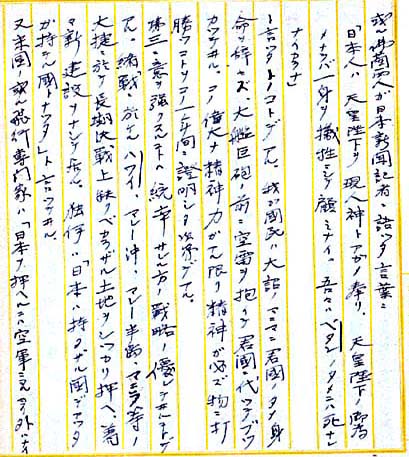 或ル佛蘭西人ガ日本新聞記者ニ語ツタ言葉ニ
「日本人ハ 天皇陛下ヲ 現人神トアガメ奉リ、 天皇陛下ノ御為
メナラバ一身ヲ犠牲ニシテ顧ミナイ。吾々ハペタンノタメニハ死ナ
ナイカラナ
ト言ツタトノコトデアル。我ガ國民ハ大詔ノマニマニ君國ノタメ身
命ヲ辞サズ、大艦巨砲ノ前ニ空雷ヲ抱イテ君國ニ代ツテブツ
カツテヰル。コノ偉大ナ精神力ガアル限リ精神ガ必ズ物ニ打
勝ツコトヲコノ一年間證明シタ次第デアル。
第三ニ意ヲ強クスルコトハ統率サレル方ノ戰略ノ優レテヰルコトデ
アル。緒戰ニ於テハワイ、マレー沖、マレー半島、マニラ等ノ
大捷ニ於テ長期決戰上缺クベカラザル土地ヲシツカリ押ヘ、着
々新建設ヲナシテ居ル。獨伊ハ「日本ハ持タザル國デアツタ
ガ持テル國トナツタ」ト言ツテヰル。
又米國ノ或ル飛行專門家ハ「日本ヲ押ヘルニハ空軍ニヨル外ハナイ